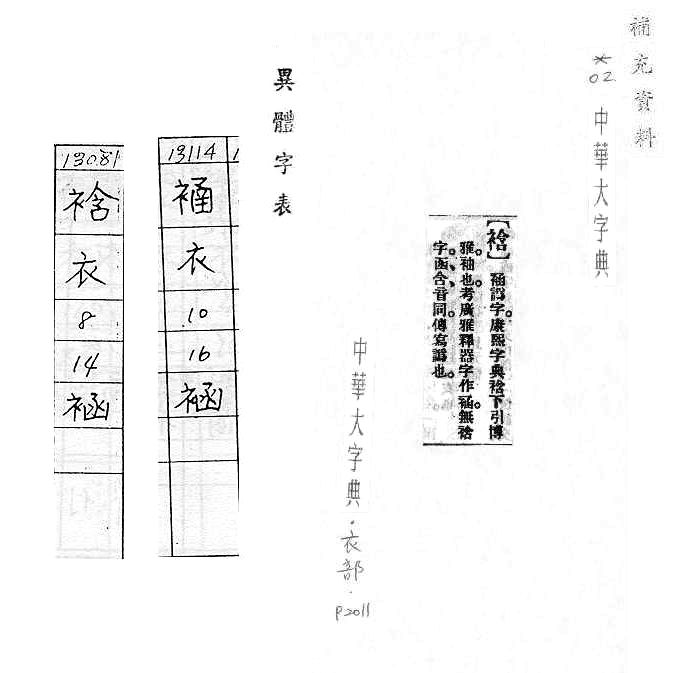 補充資料
*02
中華大字典
譌字。康熙字典下引博
雅。袖也。考廣雅釋器字作。無
字。函、含、音同。傳寫譌也。
中華大字典·衣部·
P2011
異體字表
13114
衣
10
16
13081
衣
8
14